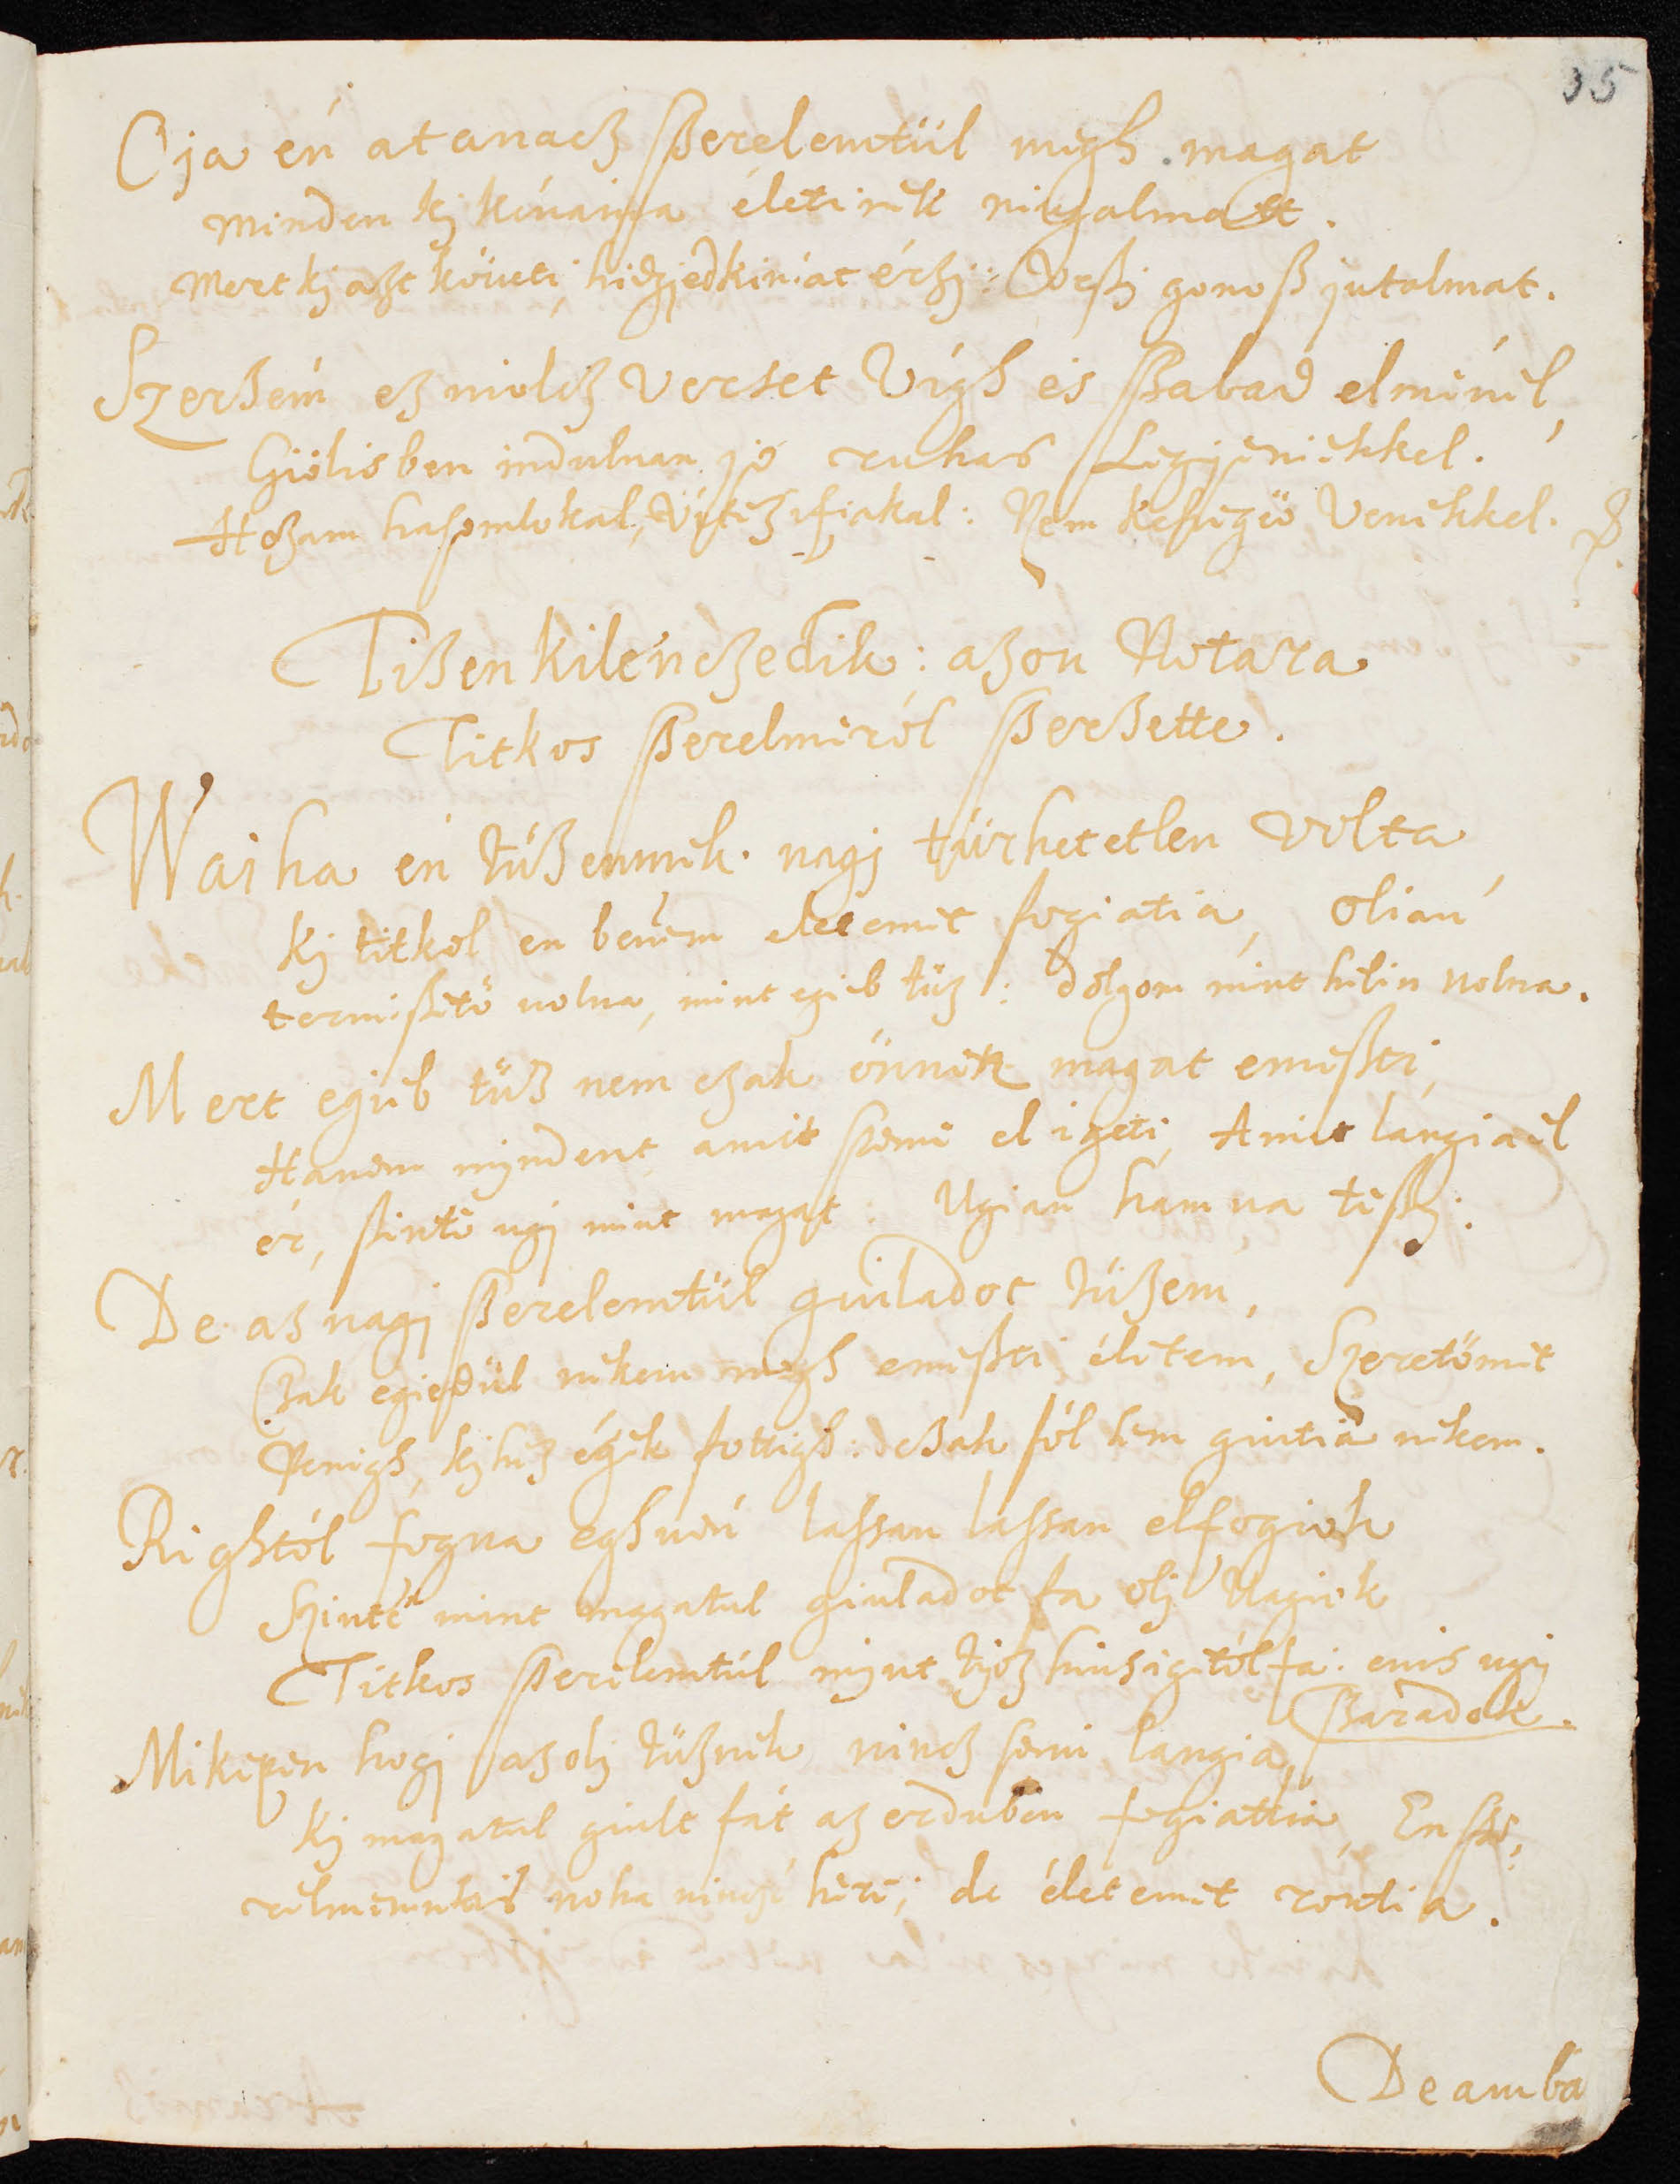 35
Oja én at anacz szerelemtül megh magat
minden kj kéuanja életinek niugalmatt.
Mert kj azt köueti, hidgjed kiniat érzj: Veszj gonosz jutalmat.
Szerzém ez niolcz Verset Vigh és szabad elminél,
Giölisben indulnan jo ruhas Legijeniekkel.
Hozam hasomlokal, Vitiz ifiakal: Nem keserigö Venikkel.
Tizenkilenczedik: azon Notara
Titkos szerelmiröl szerzette.
Waj ha én tüzemnek nagj türhetetlen volta
Kj titkol en benem eletemet fogiatia, olian
termiszetö uolna, mint egieb tüz: dolgom mint hilin uolna.
Mert egiéb tüz nem czak önnök magat emészti,
Hanem mjndent amit szemi el igeti, Amit langiaúl
ér, szinte ugj mint magat: Ugian hamua tészj.
De az nagj szerelemtül guiladot tüzem,
Czak egiedül nékem megh emészti életem, Szeretömet
Penigh, kjhuz égek fottigh: czak föl sem giutia nékem.
Rightöl fogua eghuen lassan lassan elfogiok
Szinte mint magatul giuladot fa olj Uagiok
Titkos szerelemtül mjnt tjöz hiusigitöl fa: enis ugj
szaradok.
Mikipen hogj az olj tüznek nincz semi langia,
Kj magatul giult fát az erdöben fogiattia, En sze,
relmemnekis noha nincz hire; de életemet rontia.
De amba